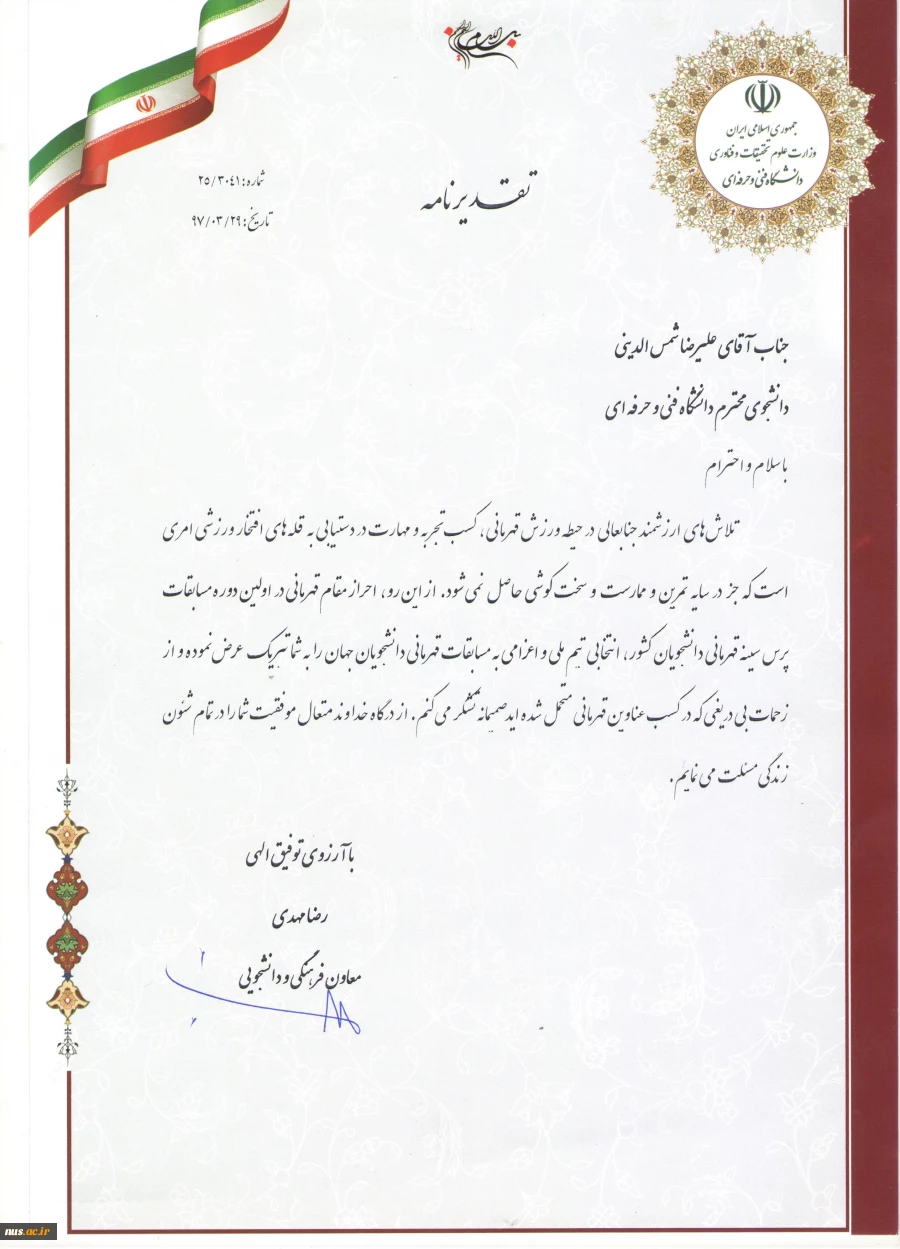 بسم الله الرحمن الرحیم
جمهوری اسلامی ایران
وزارت علوم تحقیقات و فناوری
دانشگاه فنی و حرفه‌ای
تقدیرنامه
شماره: ۲۵/۳۰۴۱
تاریخ: ۹۷/۰۳/۲۹
جناب آقای علیرضا شمس الدینی
دانشجوی محترم دانشگاه فنی و حرفه ای
با سلام و احترام
تلاش‌های ارزشمند جنابعالی در حیطه ورزش قهرمانی، کسب تجربه و مهارت در دستیابی به قله‌های افتخار ورزشی امری
است که جز در سایه تمرین و ممارست و سخت کوشی حاصل نمی‌شود. از این رو، احراز مقام قهرمانی در اولین دوره مسابقات
پرس سینه قهرمانی دانشجویان کشور، انتخابی تیم ملی و اعزامی به مسابقات قهرمانی دانشجویان جهان را به شما تبریک عرض نموده و از
زحمات بی دریغی که در کسب عناوین قهرمانی متحمل شده اید صمیمانه تشکر می‌کنم. از درگاه خداوند متعال موفقیت شما را در تمام شئون
زندگی مسئلت می‌نمایم.
با آرزوی توفیق الهی
رضا مهدی
معاون فرهنگی و دانشجویی
nus.ac.ir